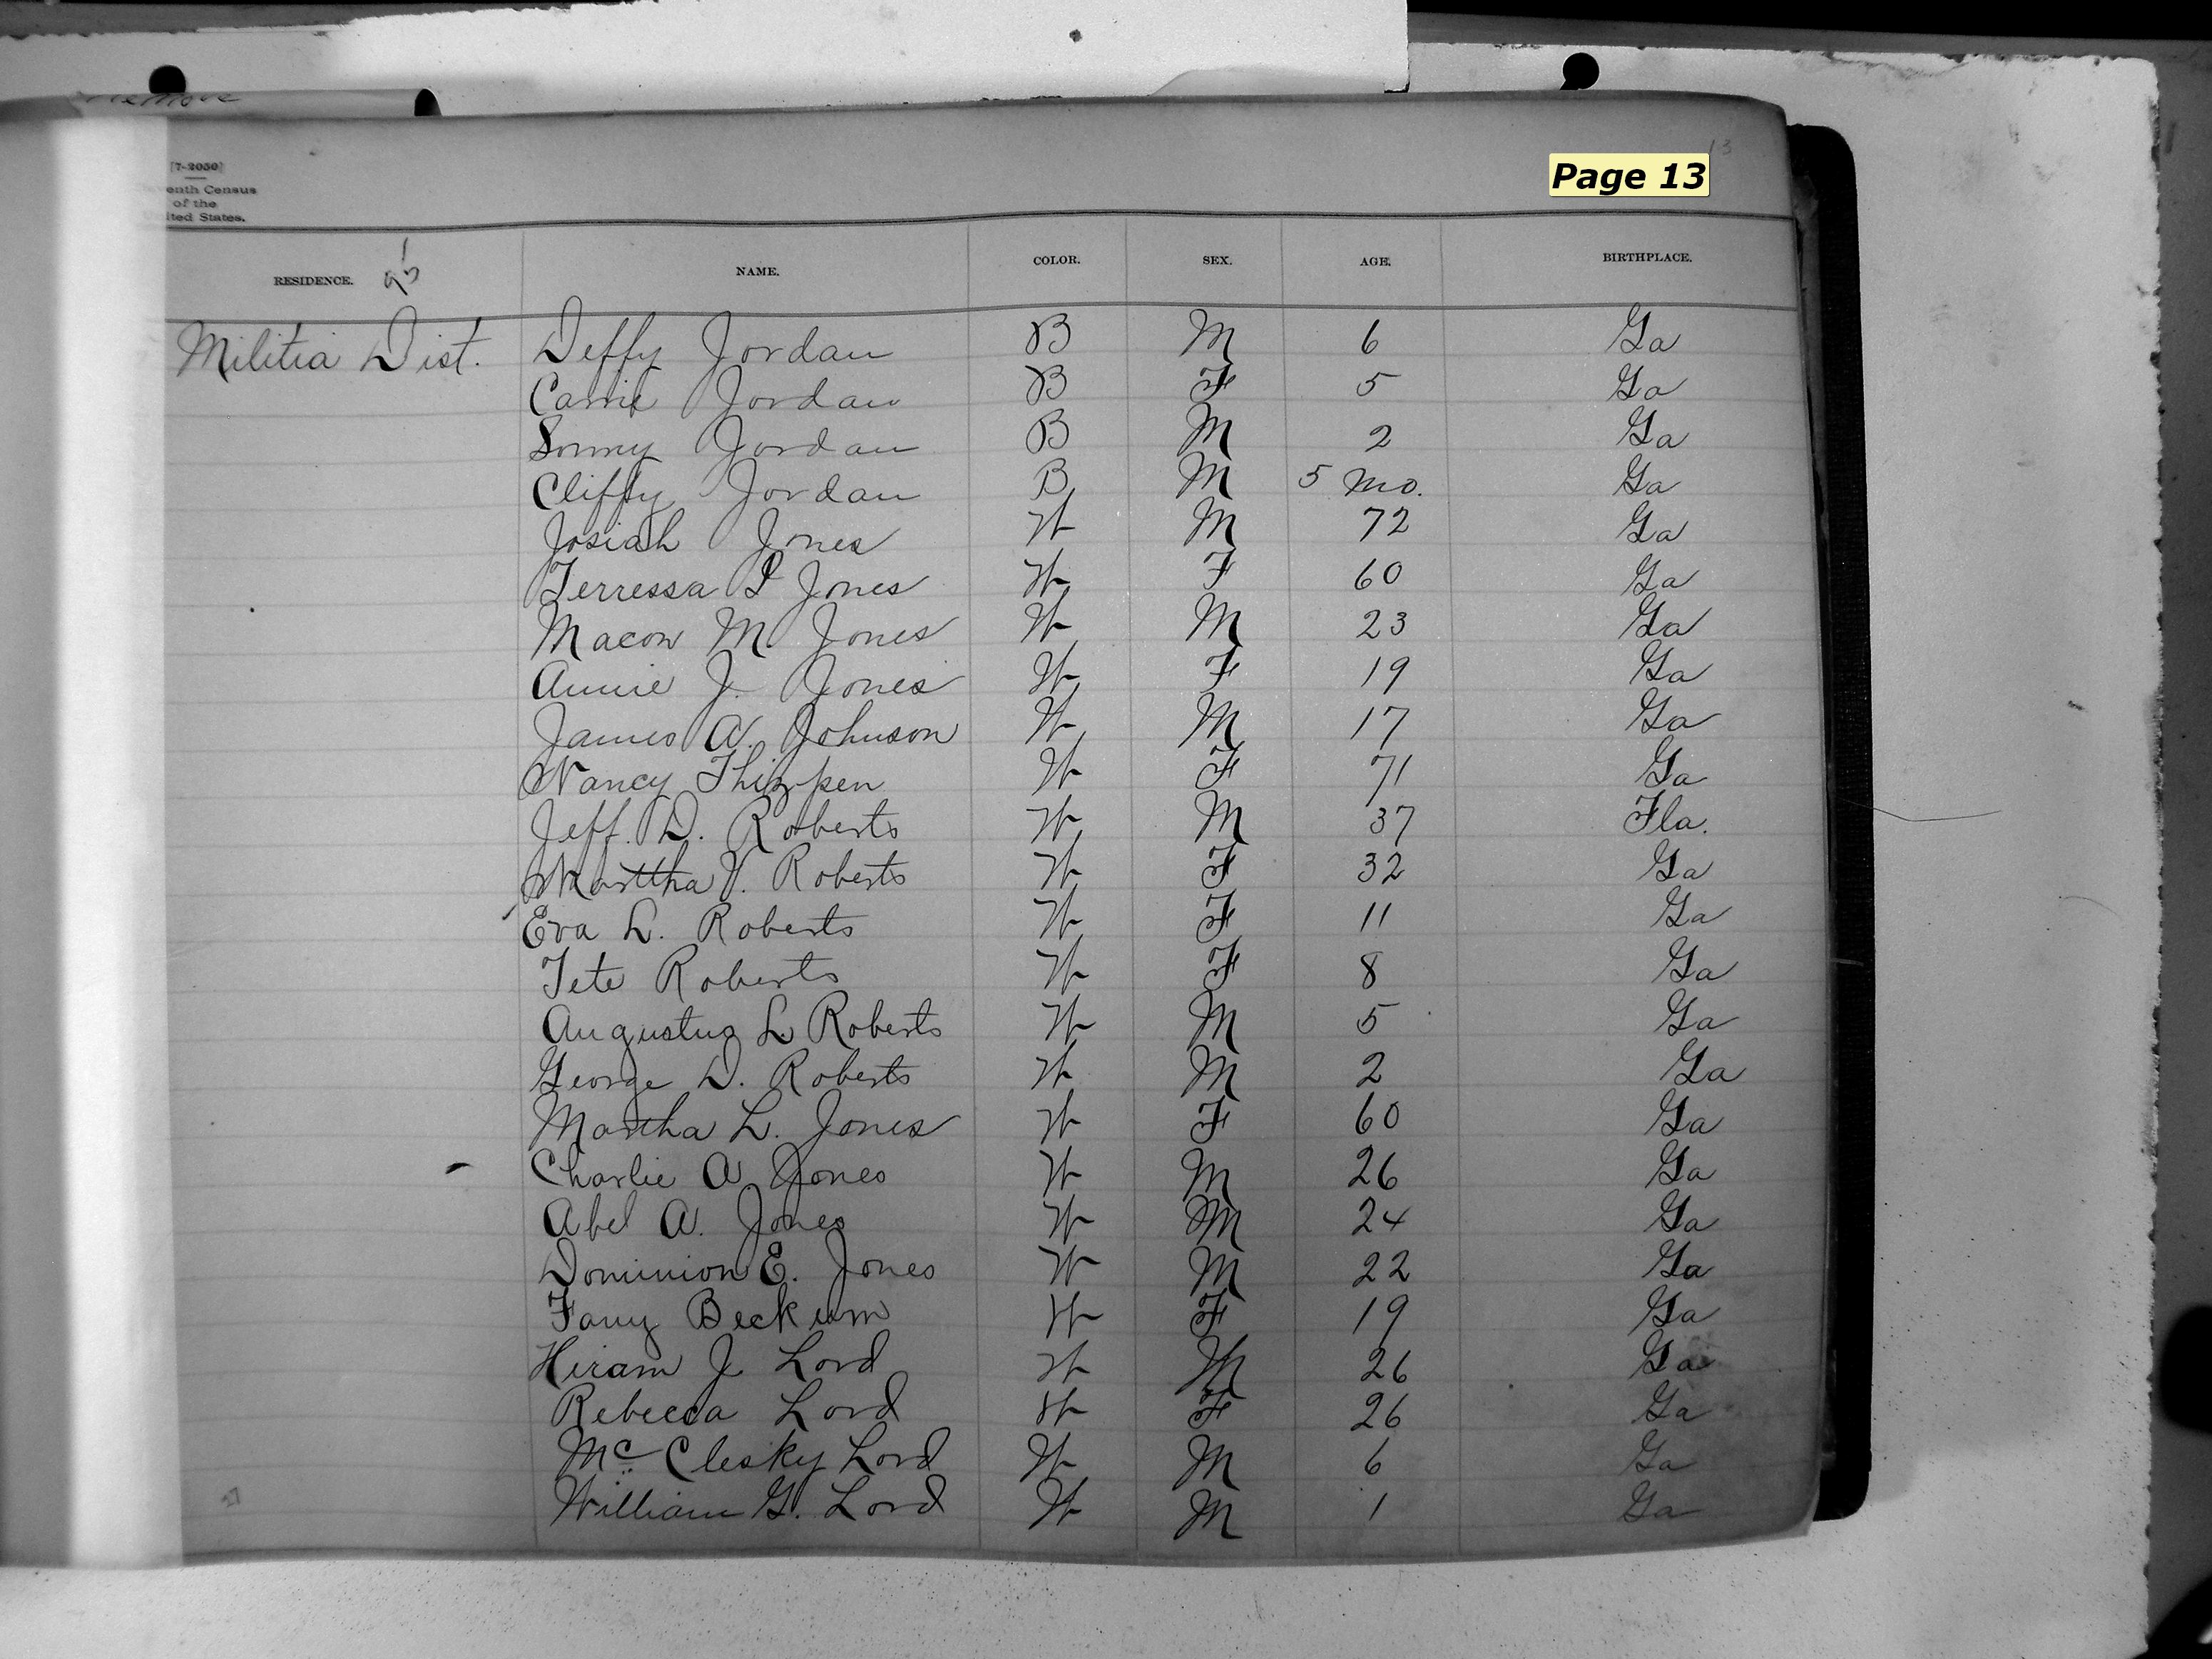 Page 13
13
[7-2050]
enth Census
of the
ited States.
RESIDENCE. NAME. COLOR. SEX. AGE. BIRTHPLACE.
Militia Dist. Deffy Jordan B M 6 Ga
Carrie Jordan B F 5 Ga
Sonny Jordan B M 2 Ga
Cliffy Jordan B M 5 Mo. Ga
Josiah Jones W M 72 Ga
Terressa P Jones W F 60 Ga
Macon M. Jones W M 23 Ga
Annie J. Jones W F 19 Ga
James A. Johnson W M 17 Ga
Nancy Thigpen W F 71 Ga
Jeff. D. Roberts W M 37 Fla.
Marttha V. Roberts W F 32 Ga
Eva L. Roberts W F 11 Ga
Tete Roberts W F 8 Ga
Augustus L Roberts W M 5 Ga
George D. Roberts W M 2 Ga
Martha L. Jones W F 60 Ga
Charlie A Jones W M 26 Ga
Abel A. Jones W M 24 Ga
Dominion E. Jones W M 22 Ga
Fany Beckum W F 19 Ga
Hiram J. Lord W M 26 Ga
Rebecca Lord W F 26 Ga
McClesky Lord W M 6 Ga
William G. Lord W M 1 Ga